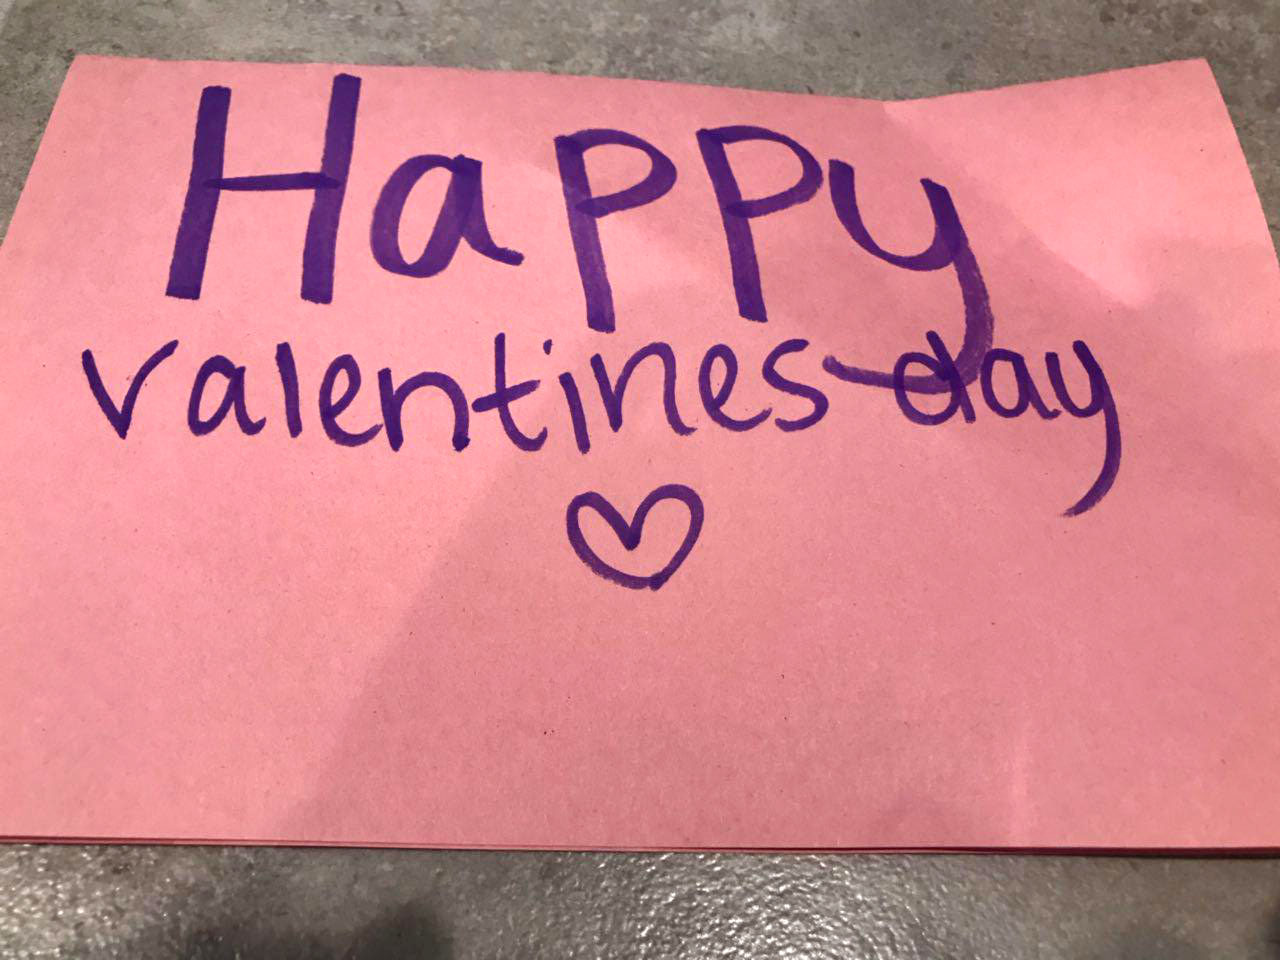 Happy
valentines day